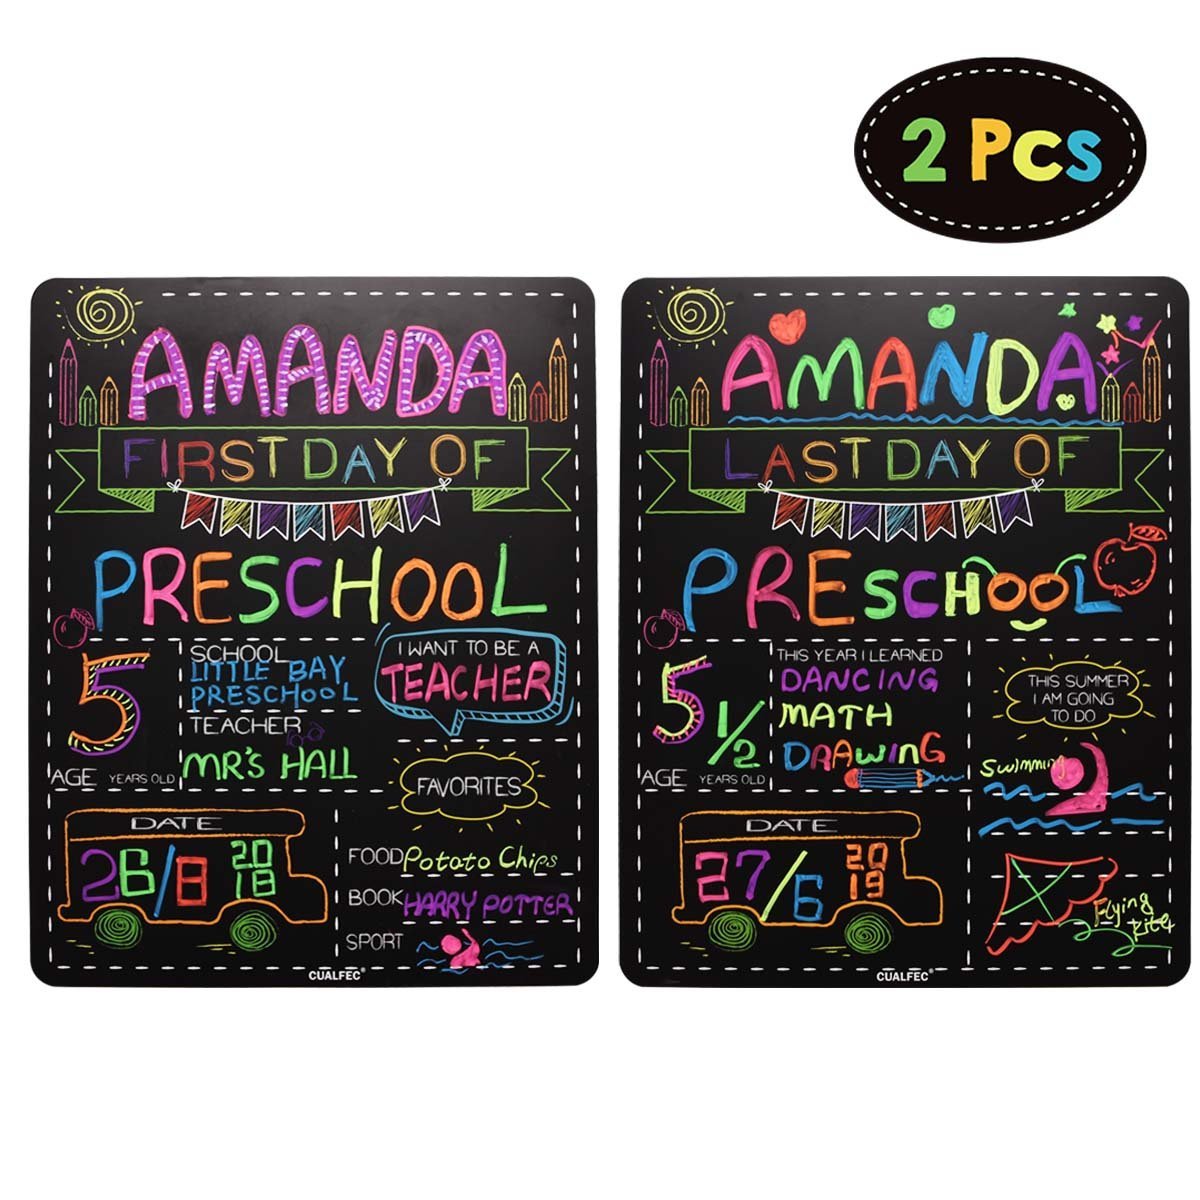 2 Pcs
AMANDA
FIRST DAY OF
PRESCHOOL
5
AGE YEARS OLD
SCHOOL
LITTLE BAY
PRESCHOOL
TEACHER
MR'S HALL
I WANT TO BE A
TEACHER
FAVORITES
DATE
26/8 2018
FOOD Potato Chips
BOOK HARRY POTTER
SPORT
CUALFEC®
AMANDA
LAST DAY OF
PRESCHOOL
5 1/2
AGE YEARS OLD
THIS YEAR I LEARNED
DANCING
MATH
DRAWING
THIS SUMMER
I AM GOING
TO DO
Swimming
DATE
27/6 2019
Flying
kite
CUALFEC®